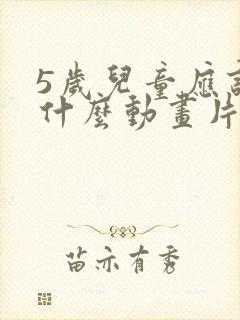 5歲兒童應
什麼動畫片
苗亦有秀